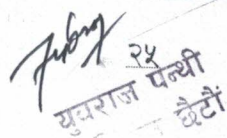 २५
युवराज पन्थी
छैटौं